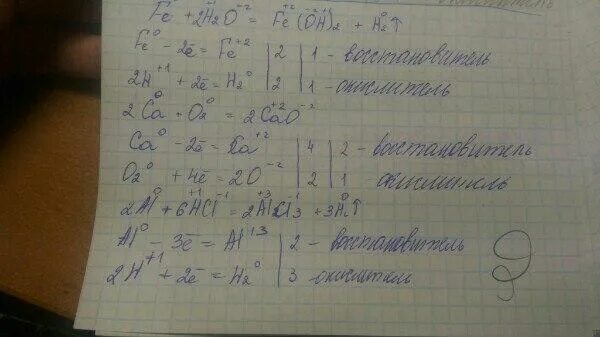 окислитель
Fe⁰ + 2H₂⁺¹O⁻² = Fe⁺²(O⁻²H⁺¹)₂ + H₂⁰↑
Fe⁰ - 2ē = Fe⁺² | 2 | 1 - восстановитель
2H⁺¹ + 2ē = H₂⁰ | 2 | 1 - окислитель
2Ca⁰ + O₂⁰ = 2Ca⁺²O⁻²
Ca⁰ - 2ē = Ca⁺² | 4 | 2 - восстановитель
O₂⁰ + 4ē = 2O⁻² | 2 | 1 - окислитель
2Al⁰ + 6H⁺¹Cl⁻¹ = 2Al⁺³Cl₃⁻¹ + 3H₂⁰↑
Al⁰ - 3ē = Al⁺³ | 2 - восстановитель
2H⁺¹ + 2ē = H₂⁰ | 3 окислитель